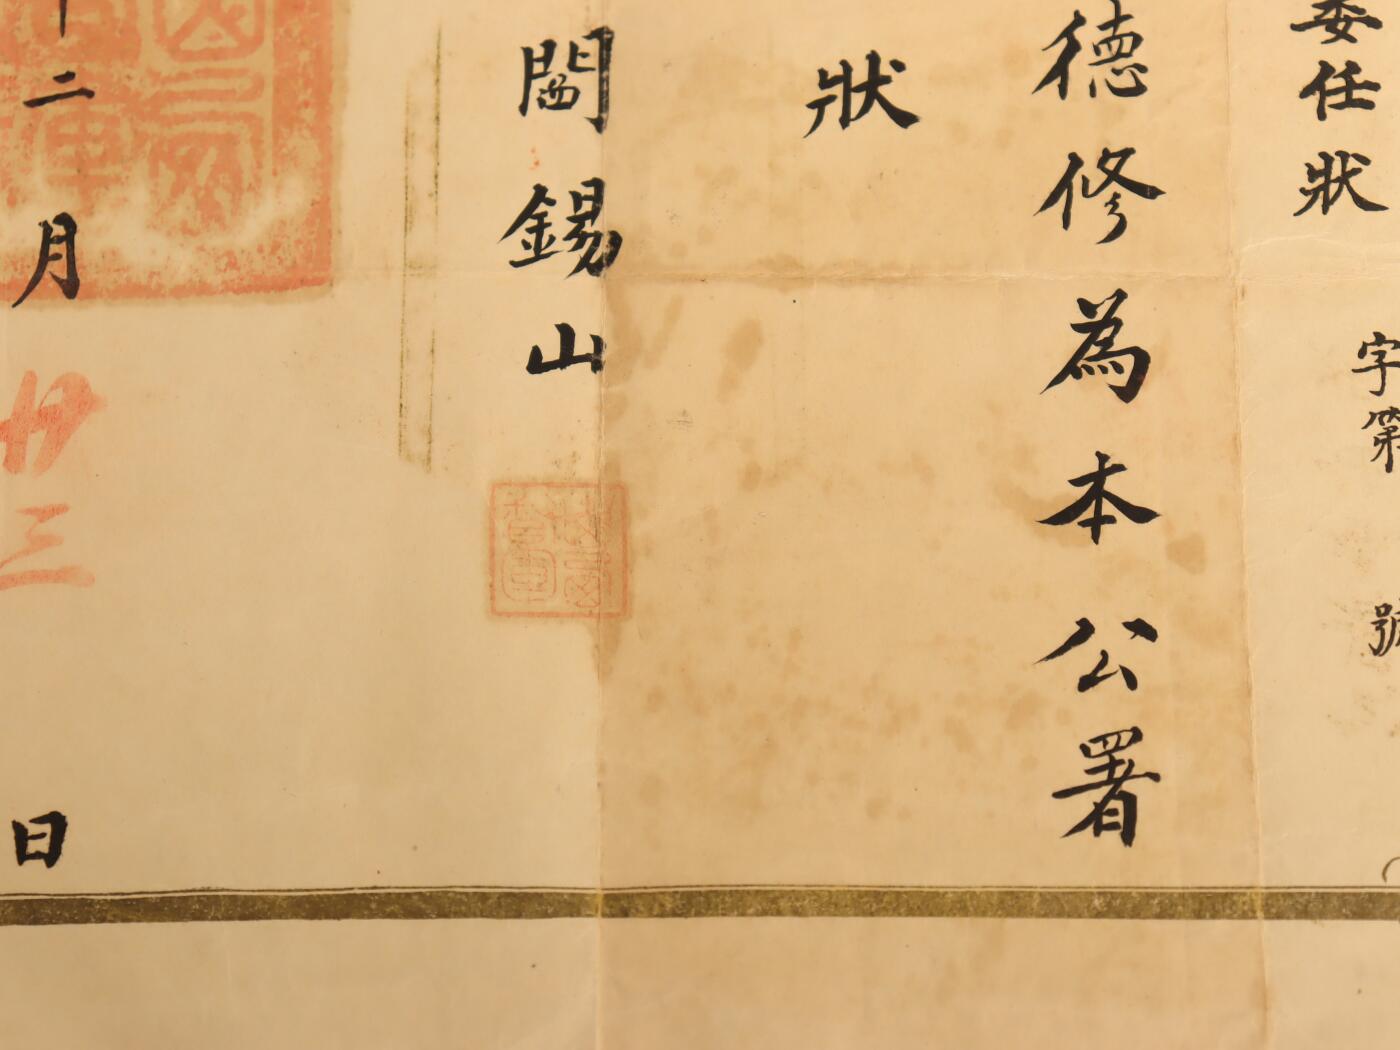 委任狀
字第 號
德修為本公署
狀
閻錫山
十二月廿三日